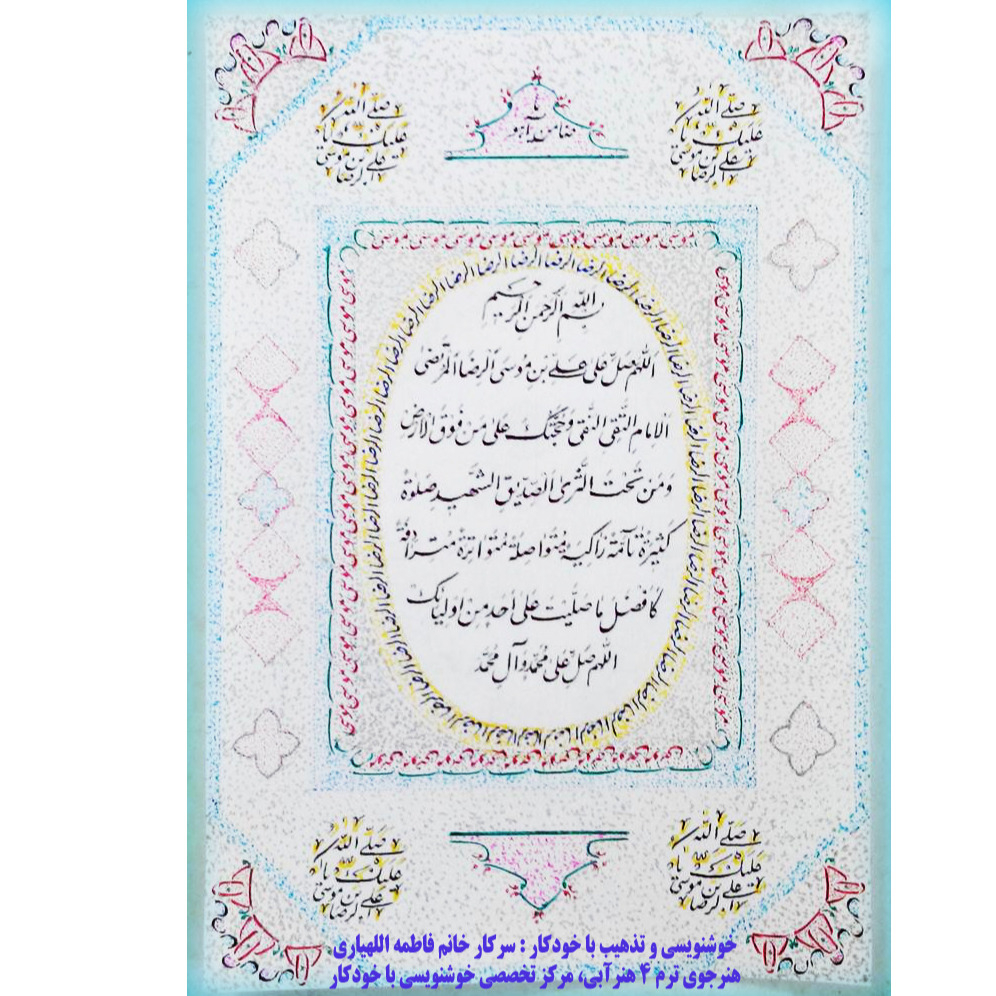 صلّی اللّه
علیک یا
علی بن موسی
الرضا
یا
ضامن آهو
صلّی اللّه
علیک یا
علی بن موسی
الرضا
موسی موسی موسی موسی موسی موسی موسی موسی موسی
الرضا الرضا الرضا الرضا الرضا الرضا الرضا الرضا
بسم اللّه الرّحمن الرّحیم
اللّهم صلّ علی علی بن موسی الرضا المرتضی
الامام التّقی النّقی و حجّتک علی من فوق الارض
ومن تحت الثّری الصّدّیق الشّهید صلوة
کثیرة تآمّة زاکیة متواصلة متواترة مترادفة
کافضل ما صلّیت علی احد من اولیائک
اللّهم صلّ علی محمّد و آل محمّد
صلّی اللّه
علیک یا
علی بن موسی
الرضا
صلّی اللّه
علیک یا
علی بن موسی
الرضا
خوشنویسی و تذهیب با خودکار : سرکار خانم فاطمه اللهیاری
هنرجوی ترم ۴ هنر آبی، مرکز تخصصی خوشنویسی با خودکار